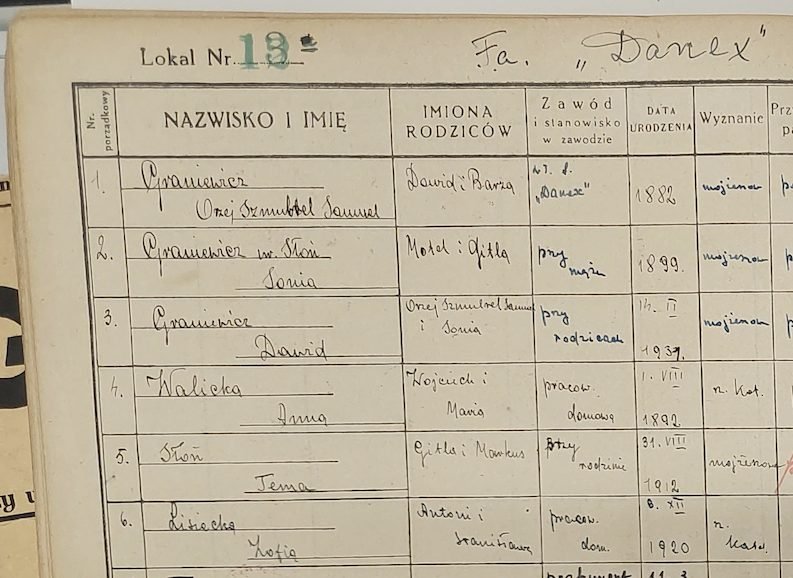 Lokal Nr. 13 Fa. „Danex"
Nr. porządkowy
NAZWISKO I IMIĘ
IMIONA
RODZICÓW
Zawód
i stanowisko
w zawodzie
DATA
URODZENIA
Wyznanie
1.
Graniewicz
Orzej Szmul Samuel
Dawid i Barza
„Danex"
1882
mojżeszow
2.
Graniewicz
Słoń
Sonia
Motel i Gitla
przy
mężu
1899.
mojżeszow
3.
Graniewicz
Dawid
Orzej Szmul Samuel
i Sonia
przy
rodzicach
14. II
1931.
mojżeszow
4.
Walicka
Anna
Wojciech i
Maria
pracow.
domowa
1. VIII
1892
r. Kat.
5.
Słoń
Tema
Gitla i Markus
przy
rodzinie
31. VIII
1912
mojżeszowe
6.
Lisiecka
Zofia
Antoni i
Stanisława
pracow.
dom.
6. XII
1920
r.
Kat.